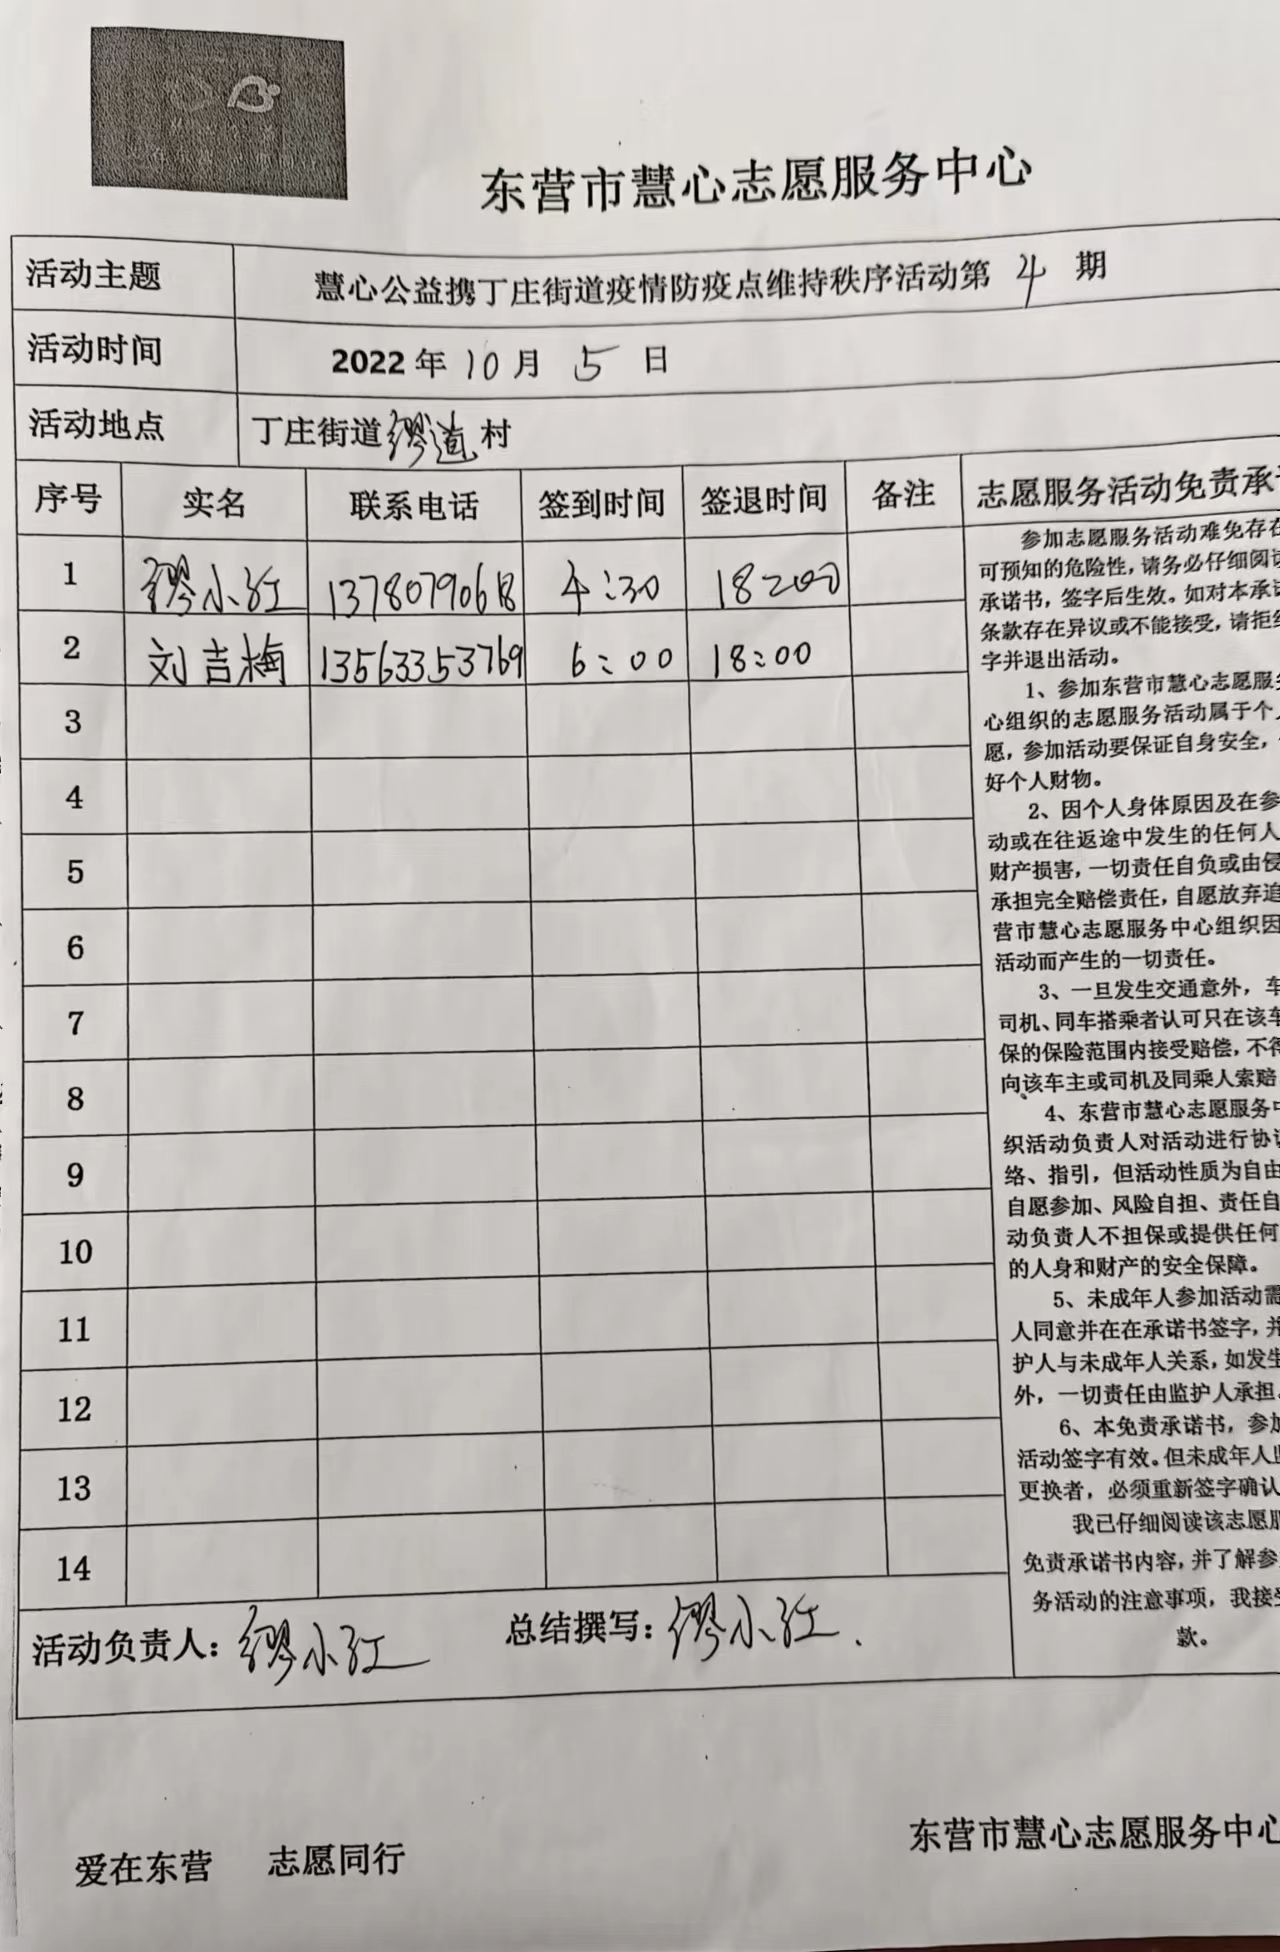 东营市慧心志愿服务中心
活动主题 慧心公益携丁庄街道疫情防疫点维持秩序活动第 4 期
活动时间 2022 年 10 月 5 日
活动地点 丁庄街道缪道村
序号 实名 联系电话 签到时间 签退时间 备注
1 缪小红 13780790618 4:30 18:00
2 刘吉梅 13563353769 6:00 18:00
3
4
5
6
7
8
9
10
11
12
13
14
活动负责人：缪小红 总结撰写：缪小红.
志愿服务活动免责承
参加志愿服务活动难免存在
可预知的危险性，请务必仔细阅读
承诺书，签字后生效。如对本承诺
条款存在异议或不能接受，请拒
字并退出活动。
1、参加东营市慧心志愿服
心组织的志愿服务活动属于个
愿，参加活动要保证自身安全，
好个人财物。
2、因个人身体原因及在参
动或在往返途中发生的任何人
财产损害，一切责任自负或由侵
承担完全赔偿责任，自愿放弃追
营市慧心志愿服务中心组织因
活动而产生的一切责任。
3、一旦发生交通意外，车
司机、同车搭乘者认可只在该车
保的保险范围内接受赔偿，不得
向该车主或司机及同乘人索赔
4、东营市慧心志愿服务中
织活动负责人对活动进行协
络、指引，但活动性质为自由
自愿参加、风险自担、责任自
动负责人不担保或提供任何
的人身和财产的安全保障。
5、未成年人参加活动需
人同意并在在承诺书签字，并
护人与未成年人关系，如发生
外，一切责任由监护人承担。
6、本免责承诺书，参加
活动签字有效。但未成年人监
更换者，必须重新签字确认
我已仔细阅读该志愿服
免责承诺书内容，并了解参
务活动的注意事项，我接受
款。
爱在东营 志愿同行
东营市慧心志愿服务中心